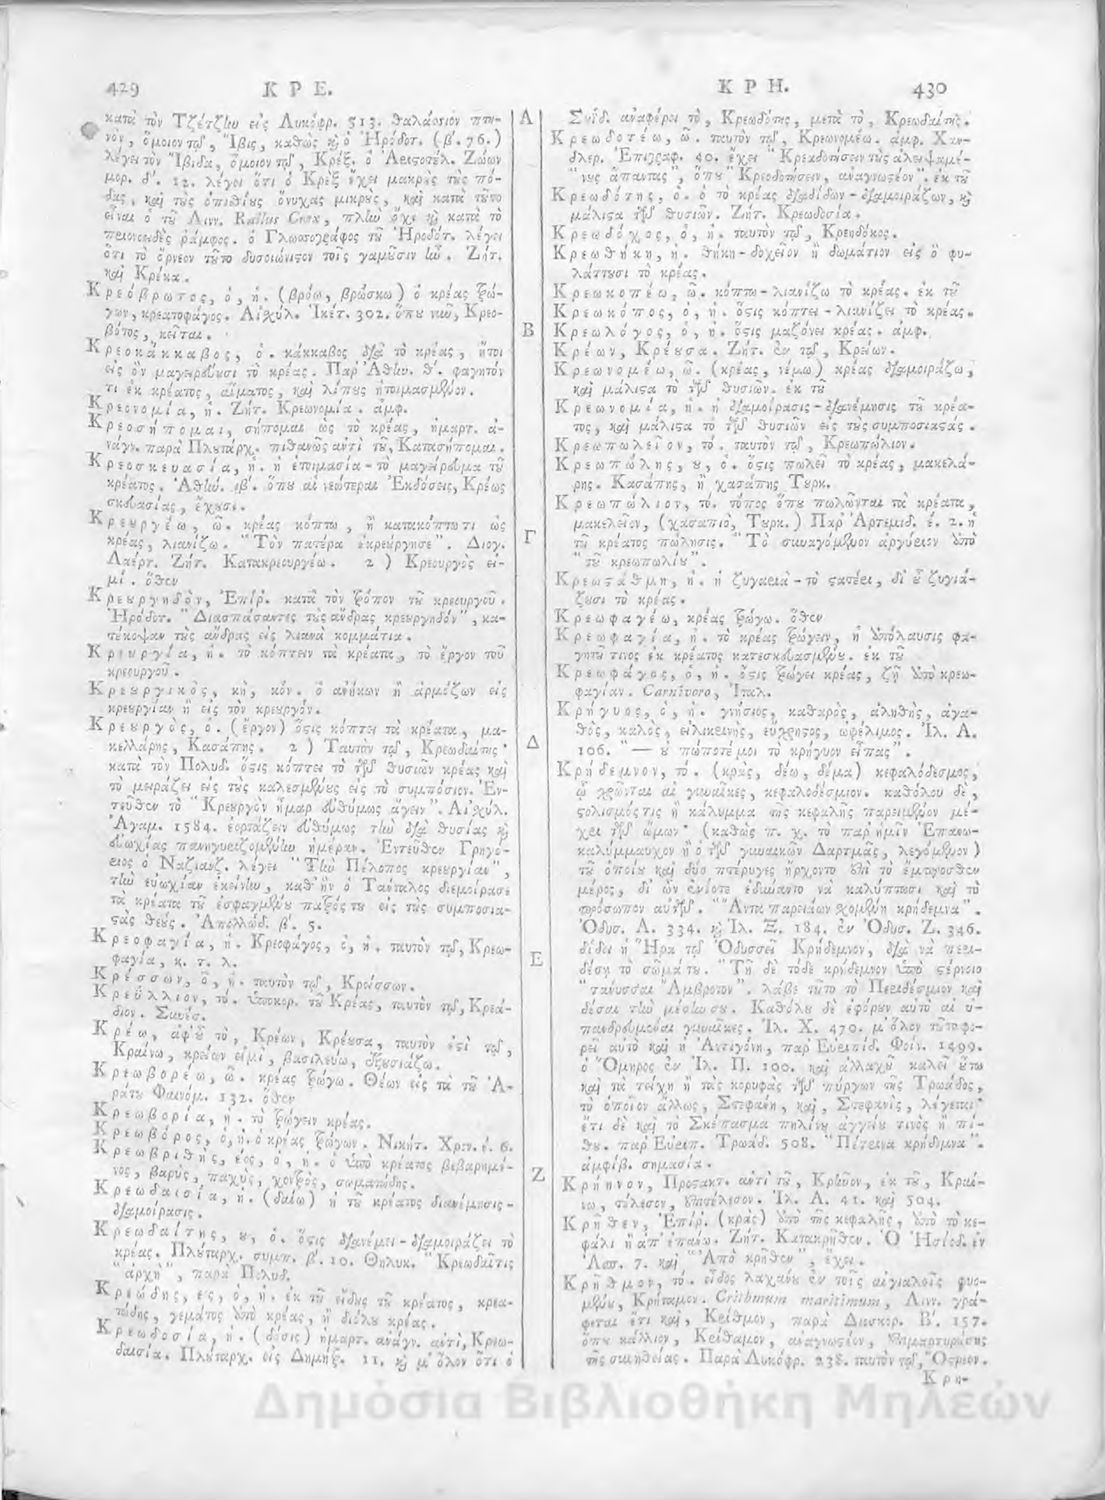 429 ΚΡΕ.
κατὰ τὸν Τζέτζην εἰς Λυκόφρ. 513. θαλάσσιον πτη-
νὸν, ὅμοιον τῷ, Ἴβις, καθὼς καὶ ὁ Ἡρόδοτ. (β΄. 76.)
λέγει τὸν Ἴβιδα, ὅμοιον τῷ, Κρέξ. ὁ Ἀριστοτέλ. Ζώων
μορ. δ΄. 12. λέγει ὅτι ὁ Κρὲξ ἔχει μακροὺς τοὺς πό-
δας, καὶ τοὺς ὀπισθίους ὄνυχας μικροὺς, καὶ κατὰ τοῦτο
εἶναι ὁ τοῦ Λινν. Rallus Crex, πλὴν ὄχι καὶ κατὰ τὸ
πριονοειδὲς ῥάμφος. ὁ Γλωσσογράφος τοῦ Ἡροδότ. λέγει
ὅτι τὸ ὄρνεον τοῦτο δυσοιώνιστον τοῖς γαμοῦσιν ἦν. Ζήτ.
καὶ Κρέκα.
Κρεόβρωτος, ὁ, ἡ. (βρόω, βρώσκω) ὁ κρέας τρώ-
γων, κρεατοφάγος. Αἰσχύλ. Ἱκέτ. 302. ὅπου νῦν, Κρεο-
βότος, κεῖται.
Κρεοκάκκαβος, ὁ. κάκκαβος διὰ τὸ κρέας, ἤτοι
εἰς ὃν μαγειρεύουσι τὸ κρέας. Παρ' Ἀθην. θ΄. φαγητόν
τι ἐκ κρέατος, αἵματος, καὶ λίπους ἡτοιμασμένον.
Κρεονομία, ἡ. Ζήτ. Κρεωνομία. ἀμφ.
Κρεοσήπομαι, σήπομαι ὡς τὸ κρέας, ἡμαρτ. ἀ-
νάγν. παρὰ Πλουτάρχ. πιθανῶς ἀντὶ τοῦ, Κατασήπομαι.
Κρεοσκευασία, ἡ. ἡ ἑτοιμασία - τὸ μαγείρευμα τοῦ
κρέατος. Ἀθην. ιβ΄. ὅπου αἱ νεώτεραι Ἐκδόσεις, Κρέως
σκευασίας, ἔχουσι.
Κρεουργέω, ῶ. κρέας κόπτω, ἢ κατακόπτω τι ὡς
κρέας, λιανίζω. "Τὸν πατέρα ἐκρεούργησε". Διογ.
Λαέρτ. Ζήτ. Κατακρεουργέω. 2) Κρεουργὸς εἰ-
μί. ὅθεν
Κρεουργηδὸν, Ἐπίρ. κατὰ τὸν τρόπον τοῦ κρεουργοῦ.
Ἡρόδοτ. "Διασπάσαντες τοὺς ἄνδρας κρεουργηδόν", κα-
τέκοψαν τοὺς ἄνδρας εἰς λιανὰ κομμάτια.
Κρεουργία, ἡ. τὸ κόπτειν τὰ κρέατα, τὸ ἔργον τοῦ
κρεουργοῦ.
Κρεουργικὸς, κὴ, κόν. ὁ ἀνήκων ἢ ἁρμόζων εἰς
κρεουργίαν ἢ εἰς τὸν κρεουργόν.
Κρεουργὸς, ὁ. (ἔργον) ὅστις κόπτει τὰ κρέατα, μα-
κελλάρης, Κασάπης. 2) Ταυτὸν τῷ, Κρεωδαίτης·
κατὰ τὸν Πολυδ. ὅστις κόπτει τὸ τῶν θυσιῶν κρέας καὶ
τὸ μοιράζει εἰς τοὺς καλεσμένους εἰς τὸ συμπόσιον. Ἐν-
τεῦθεν τὸ "Κρεουργὸν ἦμαρ εὐθύμως ἄγειν". Αἰσχύλ.
Ἀγαμ. 1584. ἑορτάζειν εὐθύμως τὴν διὰ θυσίας καὶ
εὐωχίας πανηγυριζομένην ἡμέραν. Ἐντεῦθεν Γρηγό-
ριος ὁ Ναζιανζ. λέγει "Τὴν Πέλοπος κρεουργίαν",
τὴν εὐωχίαν ἐκείνην, καθ' ἣν ὁ Τάνταλος διεμοίρασε
τὰ κρέατα τοῦ ἐσφαγμένου παιδός του εἰς τοὺς συμποσια-
στὰς θεούς. Ἀπολλόδ. β΄. 5.
Κρεοφαγία, ἡ. Κρεοφάγος, ὁ, ἡ. ταυτὸν τῷ, Κρεω-
φαγία, κ. τ. λ.
Κρέσσων, ὁ, ἡ. ταυτὸν τῷ, Κρείσσων.
Κρεύλλιον, τό. ὑποκορ. τοῦ Κρέας, ταυτὸν τῷ, Κρεά-
διον. Σουΐδ.
Κρέω, ἀφ' οὗ τὸ, Κρέων, Κρέουσα, ταυτὸν ἐστὶ τῷ,
Κραίνω, κρείων εἰμὶ, βασιλεύω, ἐξουσιάζω.
Κρεωβορέω, ῶ. κρέας τρώγω. Θέων εἰς τὰ τοῦ Ἀ-
ράτου Φαινόμ. 132. ὅθεν
Κρεωβορία, ἡ. τὸ τρώγειν κρέας.
Κρεωβόρος, ὁ, ἡ. ὁ κρέας τρώγων. Νικήτ. Χρον. έ. 6.
Κρεωβριθὴς, έος, ὁ, ἡ. ὁ ὑπὸ κρέατος βεβαρημέ-
νος, βαρὺς, παχὺς, χονδρὸς, σωματώδης.
Κρεωδαισία, ἡ. (δαίω) ἡ τοῦ κρέατος διανέμησις -
διαμοίρασις.
Κρεωδαίτης, ου, ὁ. ὅστις διανέμει - διαμοιράζει τὸ
κρέας. Πλουταρχ. συμπ. β΄. 10. Θηλυκ. "Κρεωδαῖτις
"ἀρχὴ", παρὰ Πολυδ.
Κρεώδης, ες, ὁ, ἡ. ἐκ τοῦ εἴδους τοῦ κρέατος, κρεα-
τοειδὴς, γεμάτος ἀπὸ κρέας, ἢ διόλου κρέας.
Κρεωδοσία, ἡ. (δόσις) ἡμαρτ. ἀνάγν. ἀντὶ, Κρεω-
δαισία. Πλουταρχ. εἰς Δημήτρ. 11. καὶ μ' ὅλον ὅτι ὁ
Α
Β
Γ
Δ
Ε
Ζ
ΚΡΗ. 430
Σουΐδ. ἀναφέρει τὸ, Κρεωδότης, μετὰ τὸ, Κρεωδαίτης.
Κρεωδοτέω, ῶ. ταυτὸν τῷ, Κρεωνομέω. ἀμφ. Χαν-
δλερ. Ἐπιγραφ. 40. ἔχει "Κρεαδοτήσειν τοὺς ἀλειψαμέ-
"νους ἅπαντας", ὅπου "Κρεοδοτήσειν, ἀναγνωστέον". ἐκ τοῦ
Κρεωδότης, ὁ. ὁ τὸ κρέας διαδίδων - διαμοιράζων, καὶ
μάλιστα τῶν θυσιῶν. Ζήτ. Κρεωδοσία.
Κρεωδόχος, ὁ, ἡ. ταυτὸν τῷ, Κρεηδόκος.
Κρεωθήκη, ἡ. θήκη - δοχεῖον ἢ δωμάτιον εἰς ὃ φυ-
λάττουσι τὸ κρέας.
Κρεωκοπέω, ῶ. κόπτω - λιανίζω τὸ κρέας. ἐκ τοῦ
Κρεωκόπος, ὁ, ἡ. ὅστις κόπτει - λιανίζει τὸ κρέας.
Κρεωλόγος, ὁ, ἡ. ὅστις μαζόνει κρέας. ἀμφ.
Κρέων, Κρέουσα. Ζήτ. ἐν τῷ, Κρείων.
Κρεωνομέω, ῶ. (κρέας, νέμω) κρέας διαμοιράζω,
καὶ μάλιστα τὸ τῶν θυσιῶν. ἐκ τοῦ
Κρεωνομία, ἡ. ἡ διαμοίρασις - διανέμησις τοῦ κρέα-
τος, καὶ μάλιστα τὸ τῶν θυσιῶν εἰς τοὺς συμποσιαστάς.
Κρεωπωλεῖον, τό. ταυτὸν τῷ, Κρεωπώλιον.
Κρεωπώλης, ου, ὁ. ὅστις πωλεῖ τὸ κρέας, μακελά-
ρης. Κασάπης, ἢ χασάπης Τουρκ.
Κρεωπώλιον, τό. τόπος ὅπου πωλοῦνται τὰ κρέατα,
μακελεῖον, (χασαπιὸ, Τουρκ.) Παρ' Ἀρτεμιδ. έ. 2. ἡ
τοῦ κρέατος πώλησις. "Τὸ συναγόμενον ἀργύριον ἀπὸ
"τοῦ κρεωπωλίου".
Κρεωστάθμη, ἡ. ἡ ζυγαριὰ - τὸ στατέρι, δι' οὗ ζυγιά-
ζουσι τὸ κρέας.
Κρεωφαγέω, κρέας τρώγω. ὅθεν
Κρεωφαγία, ἡ. τὸ κρέας τρώγειν, ἡ ἀπόλαυσις φα-
γητοῦ τινος ἐκ κρέατος κατεσκευασμένου. ἐκ τοῦ
Κρεωφάγος, ὁ, ἡ. ὅστις τρώγει κρέας, ζῇ ἀπὸ κρεω-
φαγίαν. Carnivoro, Ἰταλ.
Κρήγυος, ὁ, ἡ. γνήσιος, καθαρὸς, ἀληθὴς, ἀγα-
θὸς, καλὸς, εἰλικρινὴς, εὔχρηστος, ὠφέλιμος. Ἰλ. Α.
106. "— οὐ πώποτέ μοι τὸ κρήγυον εἶπας".
Κρήδεμνον, τό. (κρὰς, δέω, δέμα) κεφαλόδεσμος,
ᾧ χρῶνται αἱ γυναῖκες, κεφαλοδέσμιον. καθόλου δὲ,
στολισμός τις ἢ κάλυμμα τῆς κεφαλῆς παρειμένον μέ-
χρι τῶν ὤμων· (καθὼς π. χ. τὸ παρ' ἡμῖν Ἐπανω-
καλύμμαυχον ἢ ὁ τῶν γυναικῶν Δαρτμᾶς, λεγόμενον)
τοῦ ὁποίου καὶ δύο πτέρυγες ἤρχοντο ἐπὶ τὸ ἔμπροσθεν
μέρος, δι' ὧν ἐνίοτε ἐδύναντο νὰ καλύπτωσι καὶ τὸ
πρόσωπον αὐτῶν. "Ἄντα παρειάων σχομένη κρήδεμνα".
Ὀδυσ. Α. 334. καὶ Ἰλ. Ξ. 184. ἐν Ὀδυσ. Ζ. 346.
δίδει ἡ Ἥρα τῷ Ὀδυσσεῖ Κρήδεμνον, διὰ νὰ περι-
δέσῃ τὸ σῶμά του. "Τῆ δὲ τόδε κρήδεμνον ὑπὸ στέρνοιο
"τανύσσαι Ἄμβροτον". λάβε τοῦτο τὸ Περιδέσμιον καὶ
δέσαι τὴν μέσην σου. Καθόλου δὲ ἐφόρουν αὐτὸ αἱ ὑ-
πανδρευμέναι γυναῖκες. Ἰλ. Χ. 470. μ' ὅλον τοῦτο φο-
ρεῖ αὐτὸ καὶ ἡ Ἀντιγόνη, παρ' Εὐριπίδ. Φοίν. 1499.
ὁ Ὅμηρος ἐν Ἰλ. Π. 100. καὶ ἀλλαχοῦ καλεῖ οὕτω
καὶ τὰ τείχη ἢ τὰς κορυφὰς τῶν πύργων τῆς Τρωάδος,
τὸ ὁποῖον ἄλλως, Στεφάνη, καὶ, Στεφανὶς, λέγεται·
ἔτι δὲ καὶ τὸ Σκέπασμα πηλίνου ἀγγείου τινὸς ἢ πί-
θου. παρ' Εὐριπ. Τρωάδ. 508. "Πέτρινα κρήδεμνα".
ἀμφίβ. σημασία.
Κρήηνον, Προστακτ. ἀντὶ τοῦ, Κρῆνον, ἐκ τοῦ, Κραί-
νω, τέλεσον, ἐπιτέλεσον. Ἰλ. Α. 41. καὶ 504.
Κρῆθεν, Ἐπίρ. (κρὰς) ἀπὸ τῆς κεφαλῆς, ἀπὸ τὸ κε-
φάλι ἢ ἀπ' ἐπάνω. Ζήτ. Κατακρῆθεν. Ὁ Ἡσίοδ. ἐν
Ἀσπ. 7. καὶ "Ἀπὸ κρῆθεν", ἔχει.
Κρῆθμον, τό. εἶδος λαχάνου ἐν τοῖς αἰγιαλοῖς φυο-
μένου, Κρήταμον. Crithmum maritimum, Λινν. γρά-
φεται ἔτι καὶ, Κρίθμον, παρὰ Διοσκορ. Β΄. 157.
ὅπου κάλλιον, Κρίθαμον, ἀναγνωστέον, ἐπιμαρτυρούσης
τῆς συνηθείας. Παρὰ Λυκόφρ. 238. ταυτὸν τῷ, Ὄστριον.
Κρη-
Δημόσια Βιβλιοθήκη Μηλεών